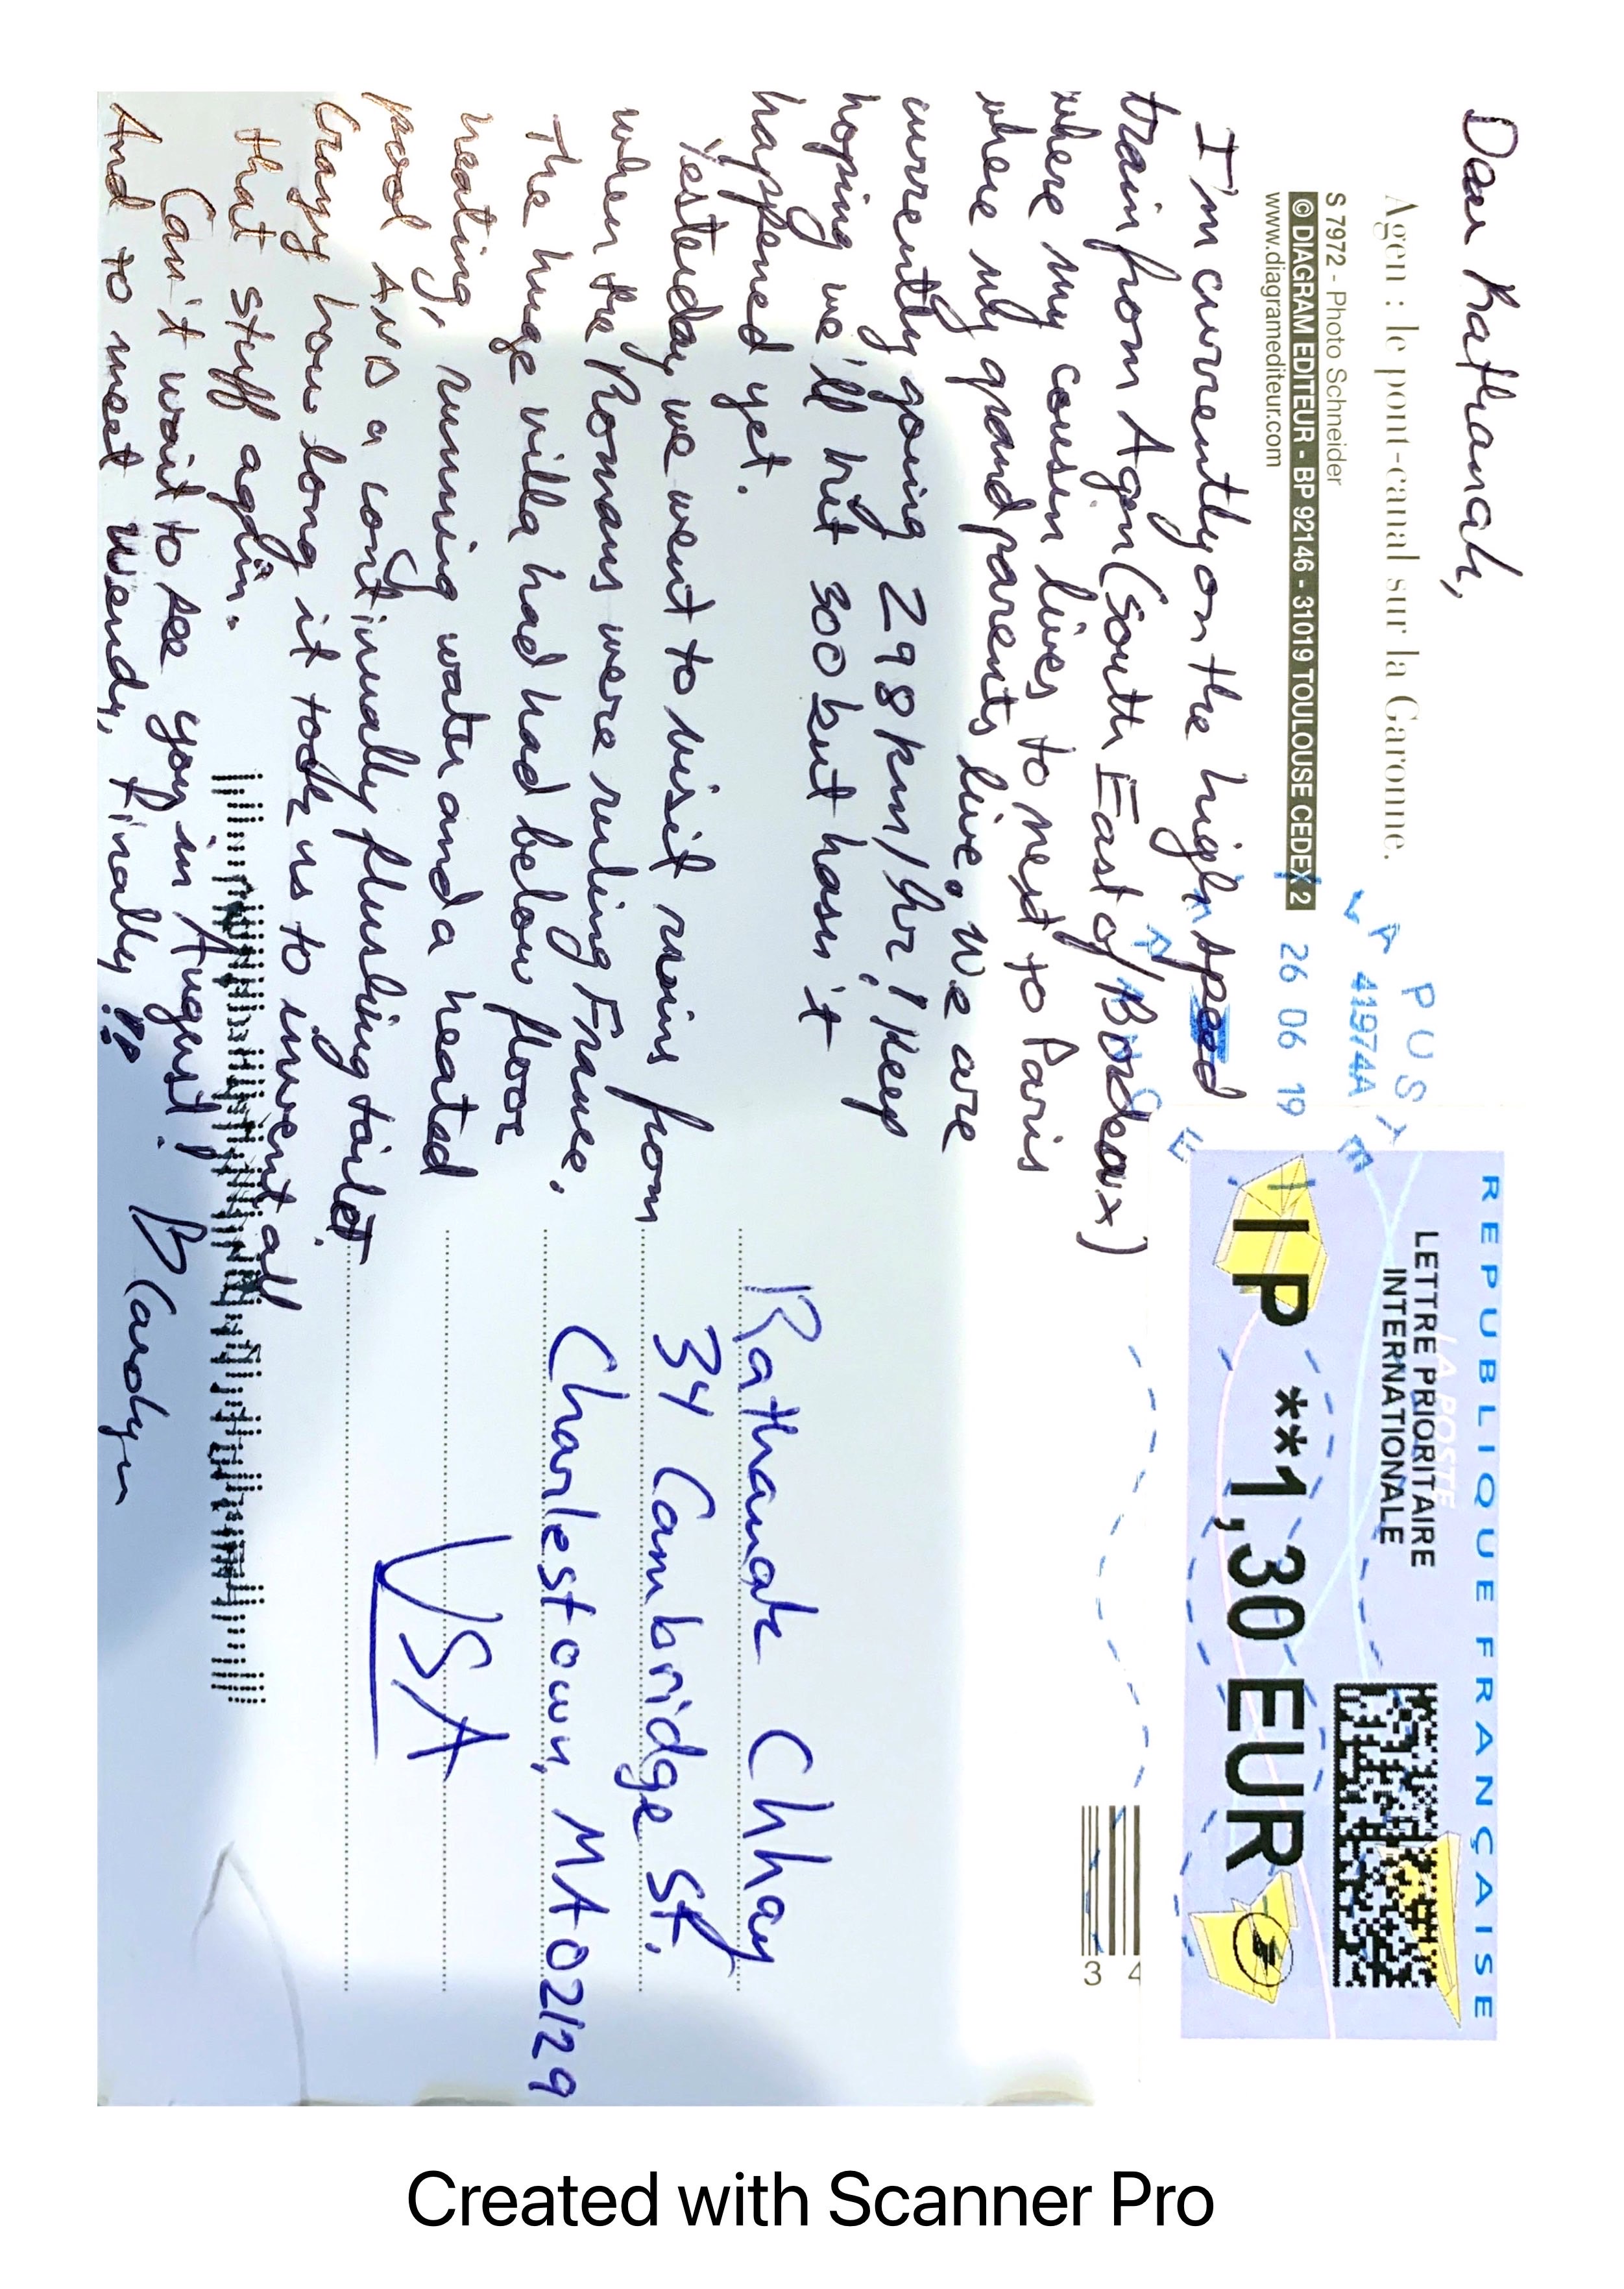 Dear Rathanak,
Agen : le pont-canal sur la Garonne.
S 7972 - Photo Schneider
© DIAGRAM EDITEUR - BP 92146 - 31019 TOULOUSE CEDEX 2
www.diagramediteur.com
I'm currently on the high speed
train from Agen (South East of Bordeaux)
where my cousin lives to next to Paris
where my grandparents live. We are
currently going 298 km/hr! I keep
hoping we'll hit 300 but hasn't
happened yet.
Yesterday we went to visit ruins from
when the Romans were ruling France.
The huge villa had had below floor
heating, running water and a heated
pool AND a continually flushing toilet.
Crazy how long it took us to invent all
that stuff again.
Can't wait to see you in August!
And to meet Wendy, finally!!
Carolyn
41974A
26 06 19
REPUBLIQUE FRANÇAISE
LA POSTE
LETTRE PRIORITAIRE
INTERNATIONALE
IP **1,30 EUR
3 4
Rathanak Chhay
34 Cambridge St.
Charlestown, MA 02129
USA
Created with Scanner Pro